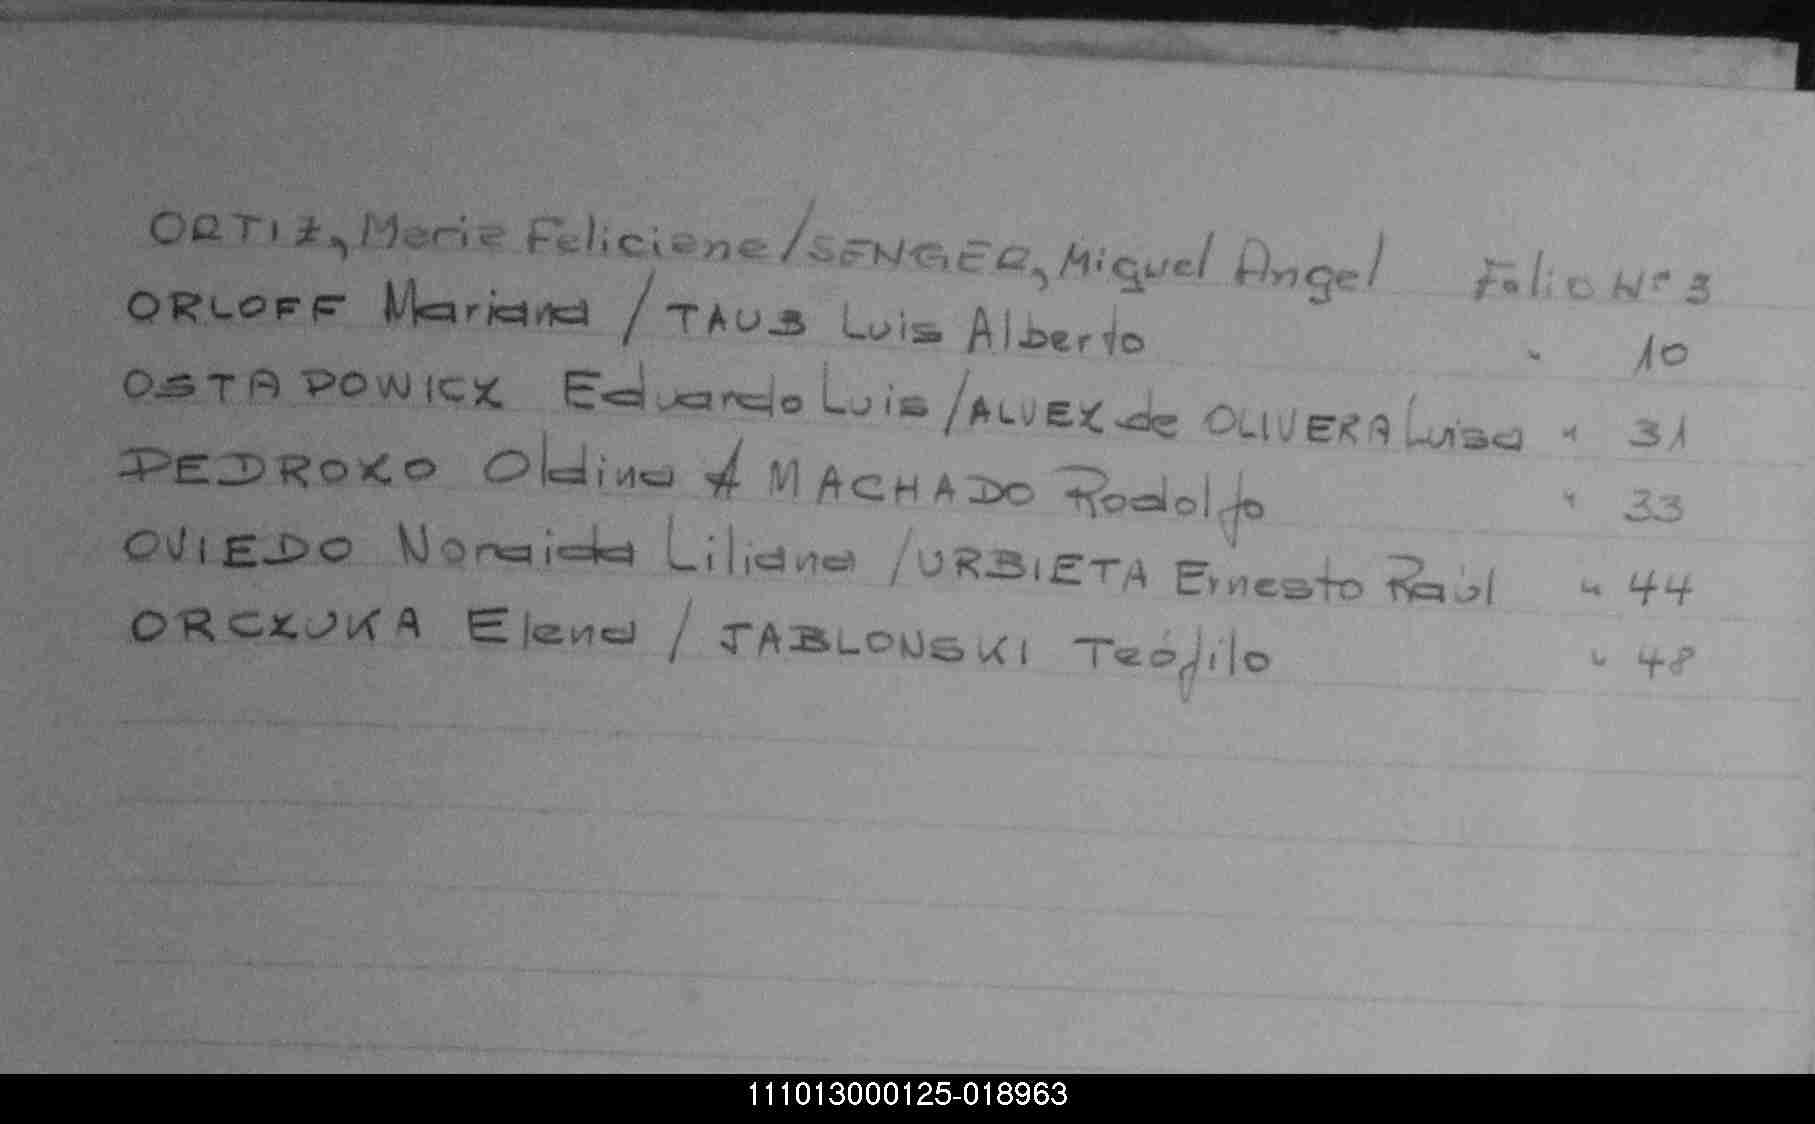 ORTIZ, Maria Feliciana / SENGER, Miguel Angel Folio Nº 3
ORLOFF Mariana / TAUB Luis Alberto " 10
OSTAPOWICZ Eduardo Luis / ALVEZ de OLIVERA Luisa " 31
PEDROZO Oldina / MACHADO Rodolfo " 33
OVIEDO Noraida Liliana / URBIETA Ernesto Raúl " 44
ORCZUKA Elena / JABLONSKI Teófilo " 48
111013000125-018963